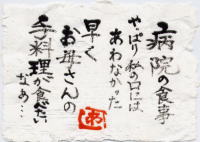 病院の食事
やっぱり私の口には
あわなかった
早く
お母さんの
手料理が食べたい
なぁ…